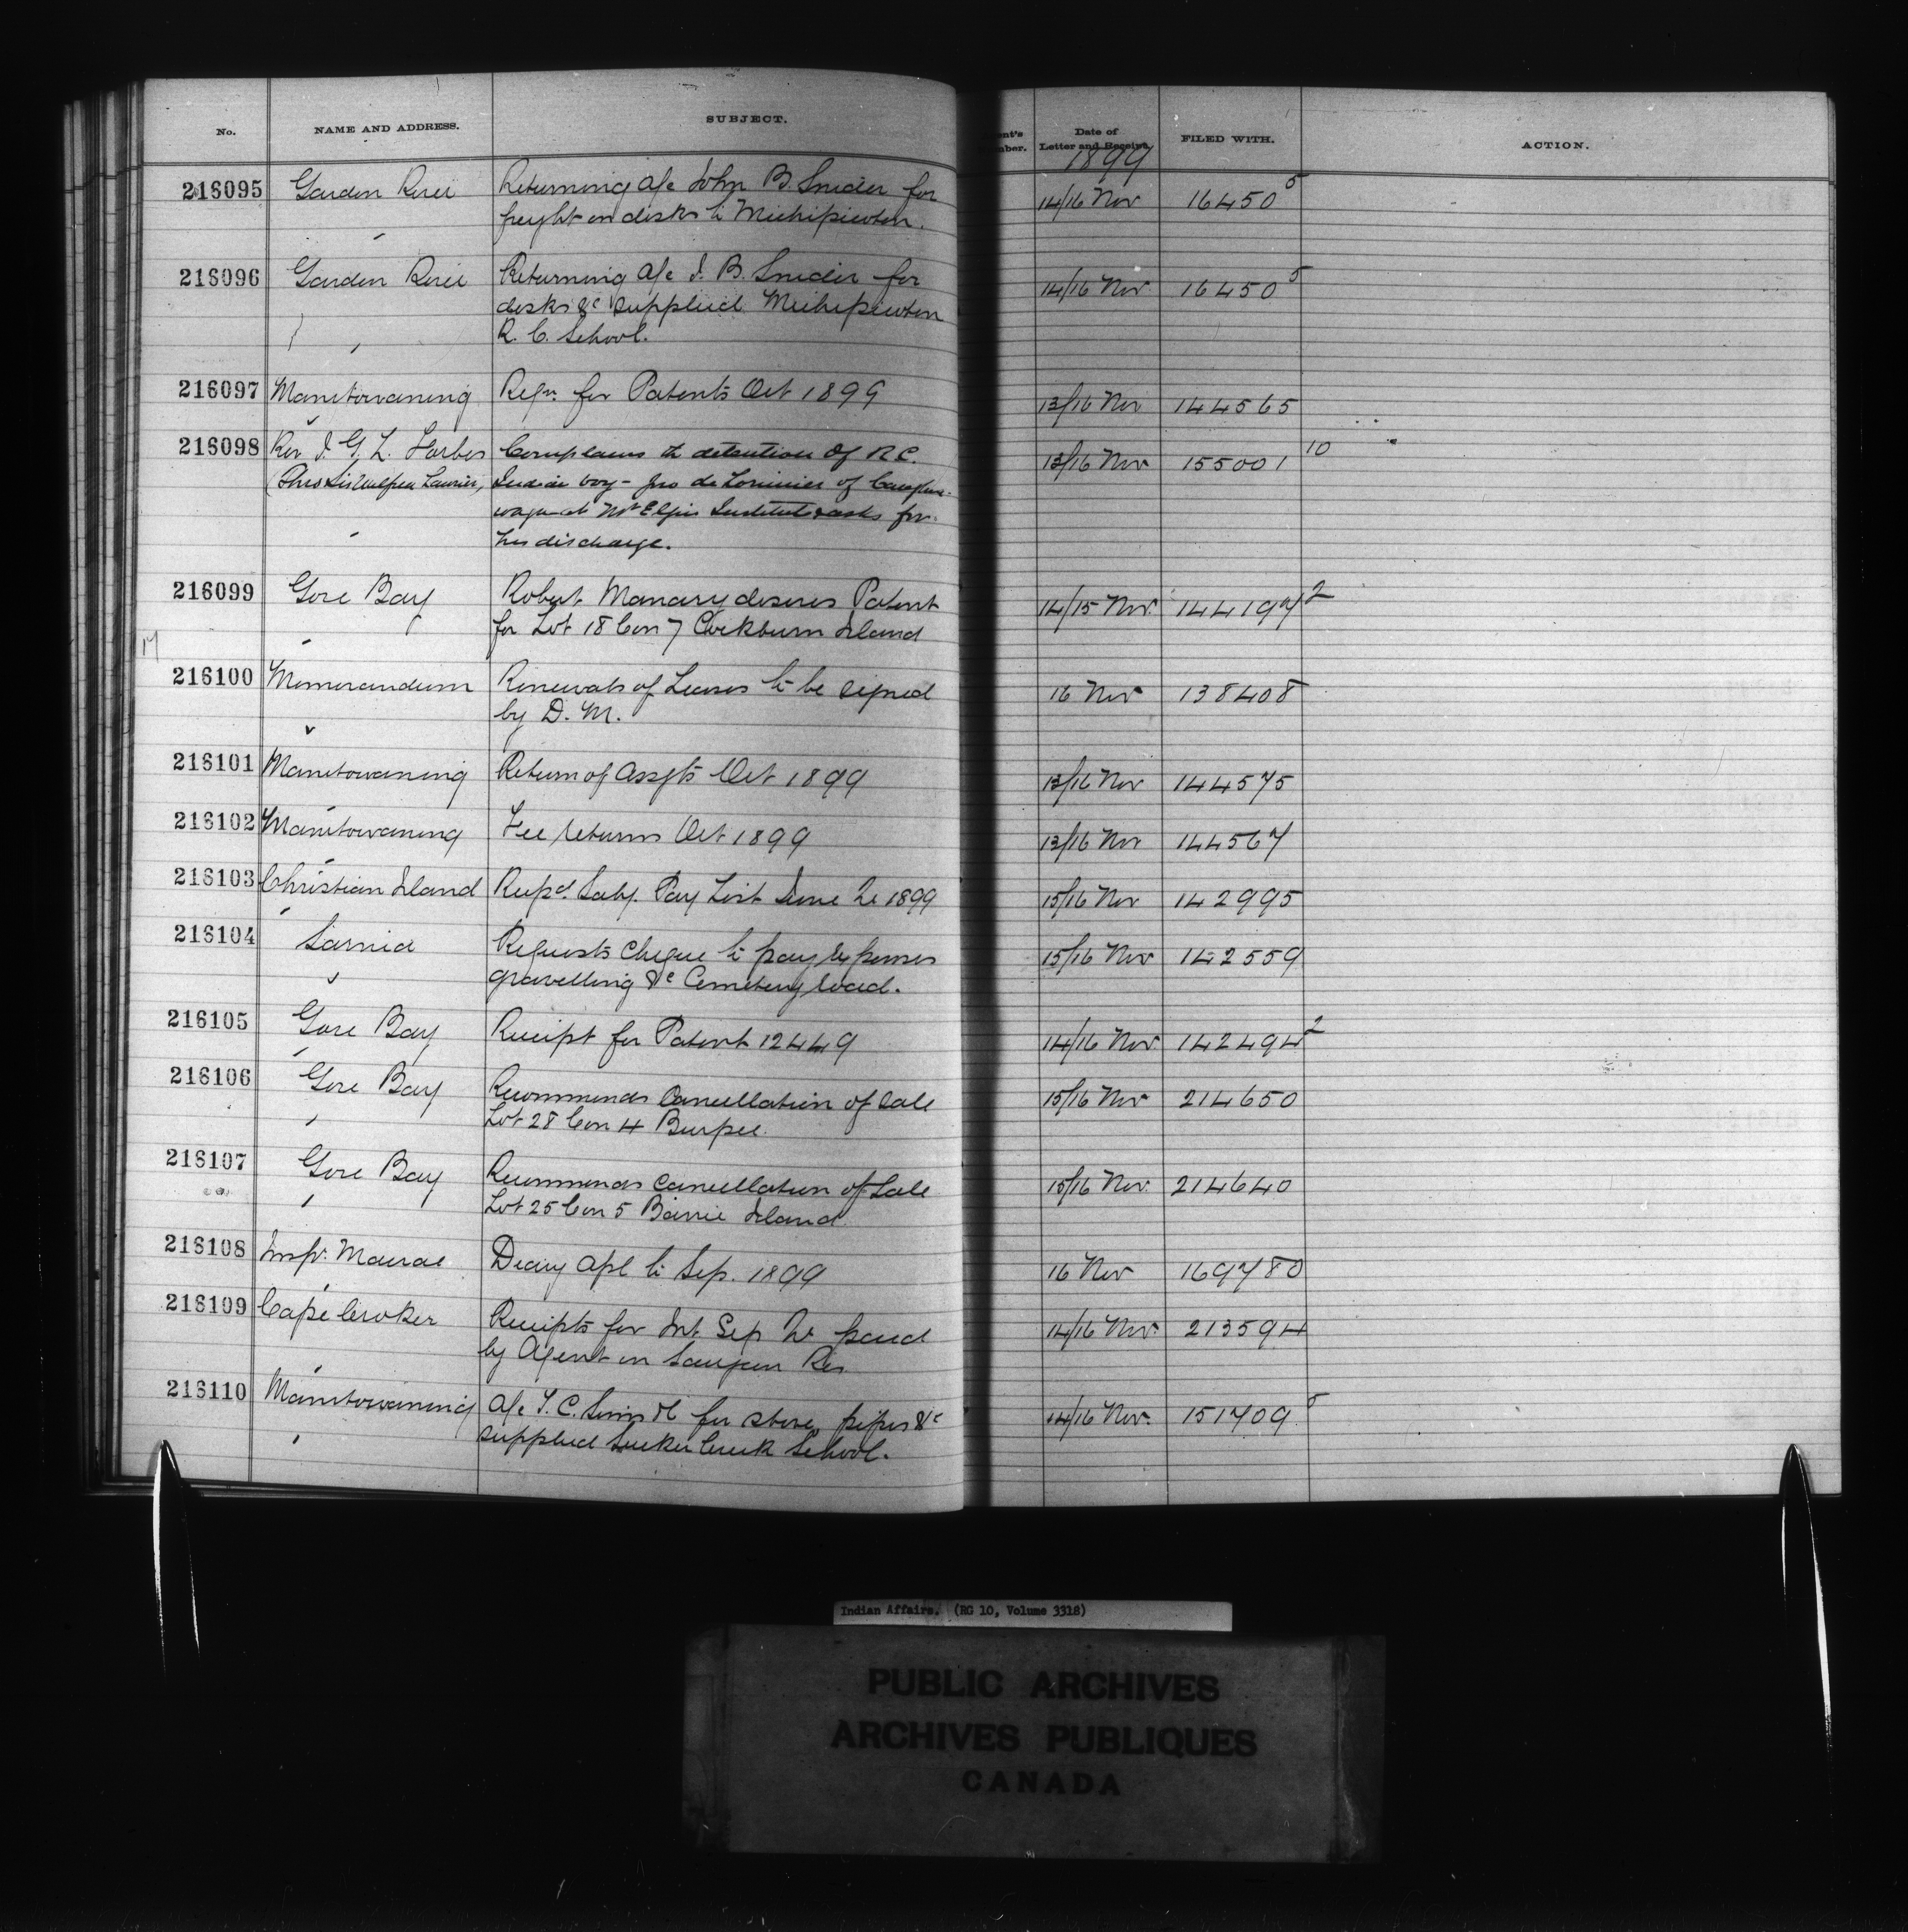 No. NAME AND ADDRESS. SUBJECT. Date of Letter and Receipt. FILED WITH. ACTION.
1899
216095 Garden River Returning a/c John B. Snider for 14/16 Nov 16450 5
freight on desks to Michipicoton.
216096 Garden River Returning a/c J. B. Snider for 14/16 Nov 16450 5
desks &c supplied Michipicoton
R. C. School.
216097 Manitowaning Retn. for Patents Oct 1899 13/16 Nov 144565
216098 Rev J. G. L. Forbes Complains re detention of R.C. 13/16 Nov 155001 10
(Thro Sir Wilfred Laurier, Indian boy - Jno de Lorimier of Caughna-
waga at Mt Elgin Institute & asks for
his discharge.
216099 Gore Bay Robert Manary desires Patent 14/15 Nov. 144197 2
for Lot 18 Con 7 Cockburn Island
216100 Memorandum Renewals of Leases to be signed 16 Nov 138408
by D. M.
216101 Manitowaning Return of Assgts Oct 1899 13/16 Nov 144575
216102 Manitowaning Fee returns Oct 1899 13/16 Nov 144567
216103 Christian Island Recpd. Saly. Pay List June Qr 1899 15/16 Nov 142995
216104 Sarnia Requests Cheque to pay expenses 15/16 Nov 142559
gravelling &c Cemetery road.
216105 Gore Bay Receipt for Patent 12449 14/16 Nov. 142494 2
216106 Gore Bay Recommends Cancellation of sale 15/16 Nov 214650
Lot 28 Con 4 Burpee.
216107 Gore Bay Recommends cancellation of Sale 15/16 Nov. 214640
Lot 25 Con 5 Barrie Island
216108 Insp. Macrae Diary Apl to Sep. 1899 16 Nov 169780
216109 Cape Croker Receipts for Int. Sep Qr paid 14/16 Nov. 213594
by Agent on Saugeen Res
216110 Manitowaning a/c T. C. Sims for stove, pipes &c 14/16 Nov. 151709 5
supplied Sucker Creek School.
Indian Affairs. (RG 10, Volume 3318)
PUBLIC ARCHIVES
ARCHIVES PUBLIQUES
CANADA